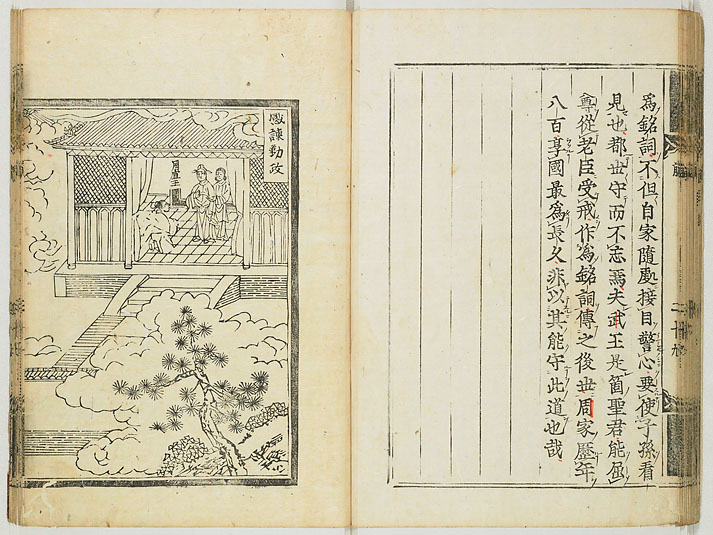 為銘詞不但自家隨處接目警心要使子孫看
見也都世守而不忘焉夫武王是箇聖君能屈
尊從老臣受戒作為銘詞傳之後世周家歷年
八百享國最為長久非以其能守此道也哉
感諫勤政
周宣王